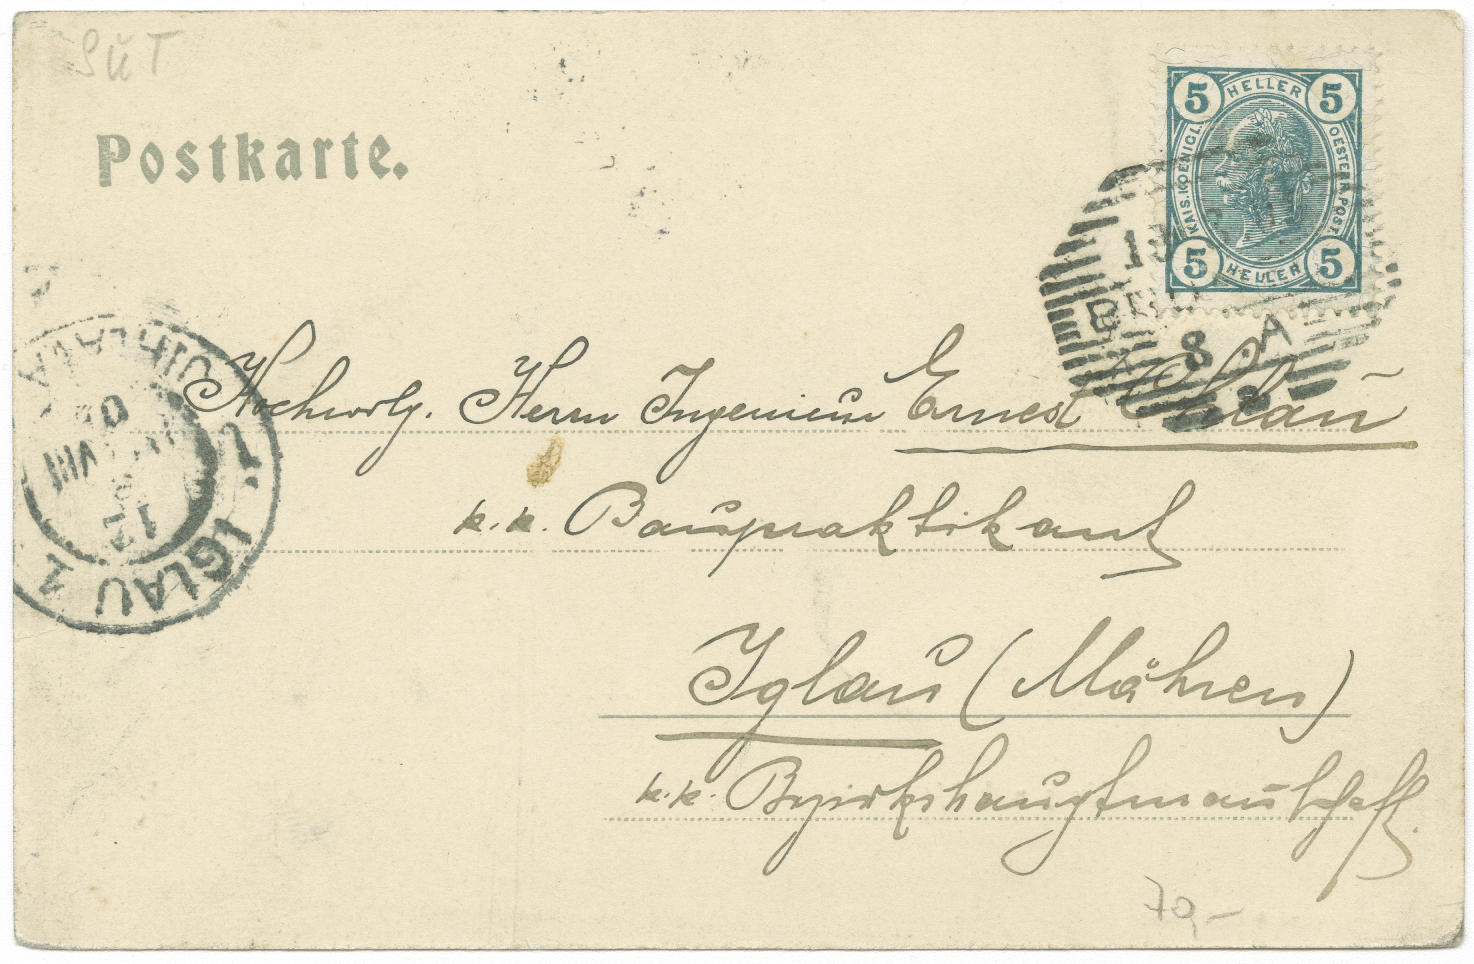 SüT
Postkarte.
5 HELLER 5
KAIS. KOENIGL. OESTERR. POST.
5 HELLER 5
13
8 A
JIHLAVA
12
VIII
IGLAU 1
Hochwolg. Herrn Ingenieur Ernest
k. k. Baupraktikant
Iglau (Mähren)
k. k. Bezirkshauptmannschaft.
70,-